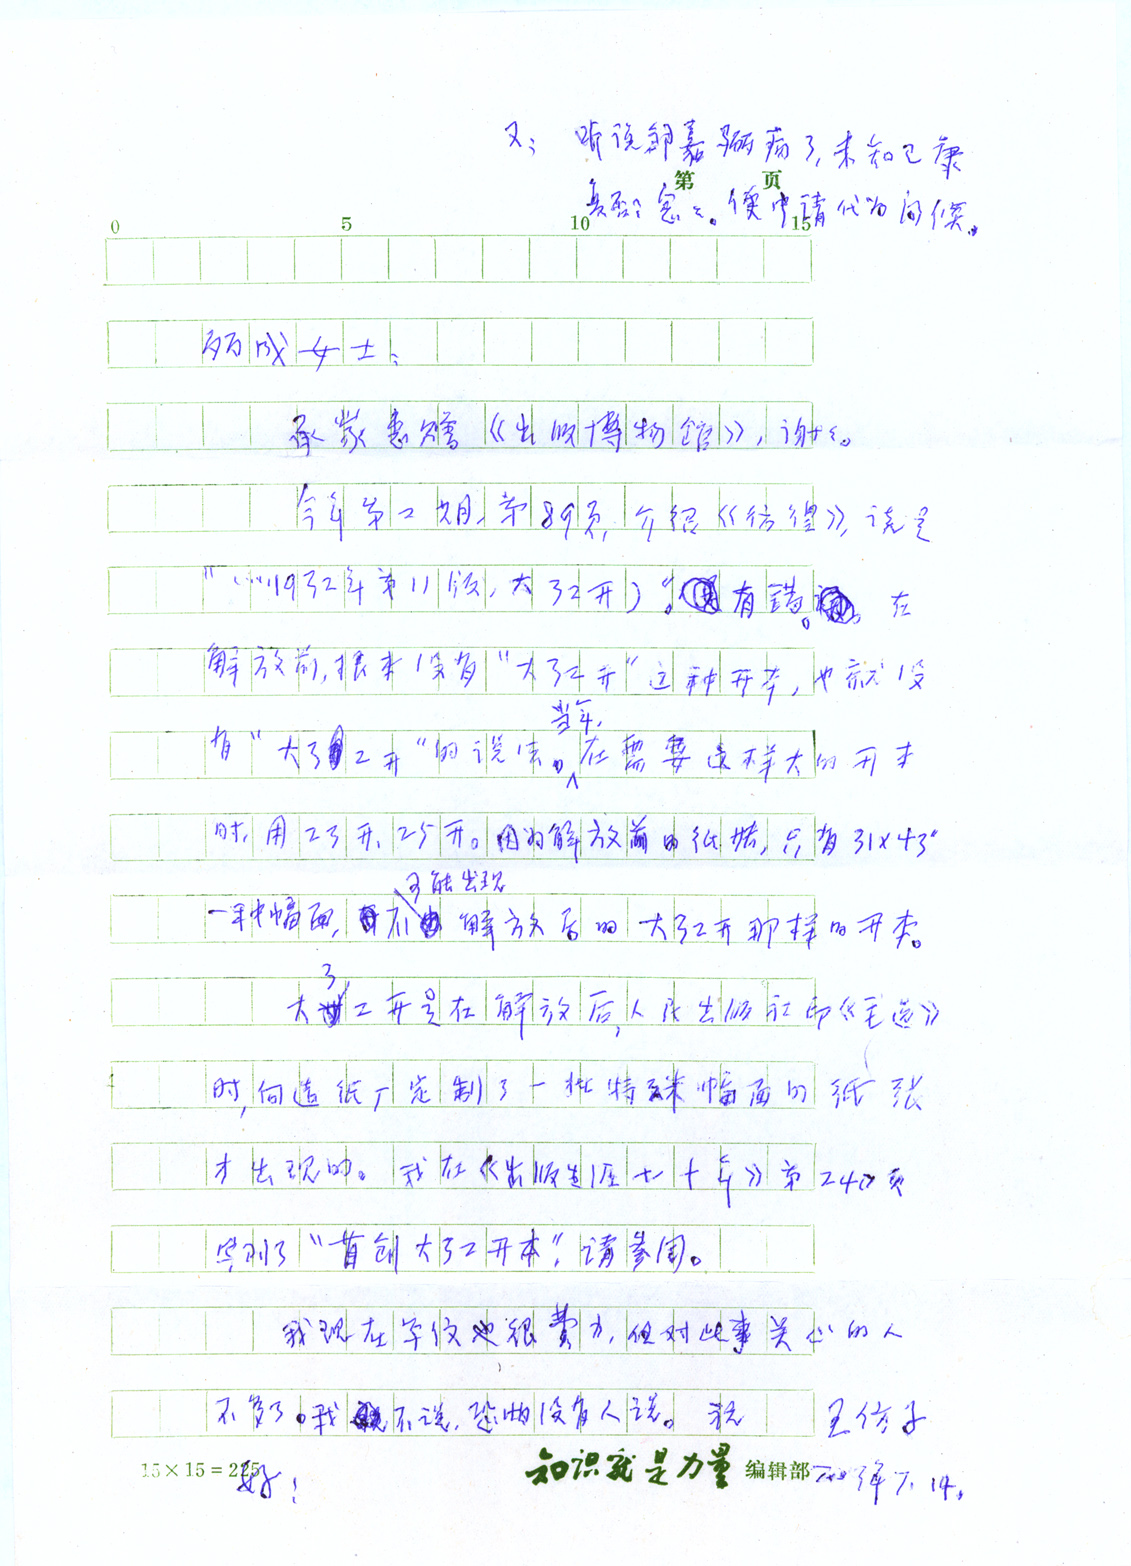 又：听说郭嘉 病了，未知已康
第 页
复否？念念。便中请代为问候。
0 5 10 15
丽成女士：
承蒙惠赠《出版博物馆》，谢谢。
今年第二期，第89页，介绍《彷徨》，说是
“……1932年第11版，大32开）”。有错。在
解放前，根本没有“大32开”这种开本，也就没
有“大32开”的说法。当年，在需要这样大的开本
时，用23开、25开。因为解放前的纸张，只有31×43"
一种幅面，不可能出现解放后的大32开那样的开本。
大32开是在解放后，人民出版社印《毛选》
时，向造纸厂定制了一批特殊幅面的纸张
才出现的。我在《出版生涯七十年》第240页
写到了“首创大32开本”，请参阅。
我现在写字也很费力，但对此事关心的人
不多了。我不说，恐怕没有人说。祝
王仿子
好！
15×15=225
知识就是力量 编辑部
7.14.